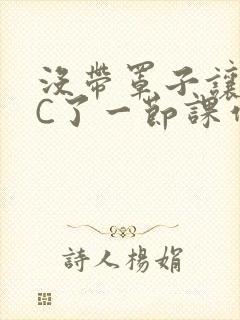 沒帶罩子讓
C了一節課
詩人楊娟